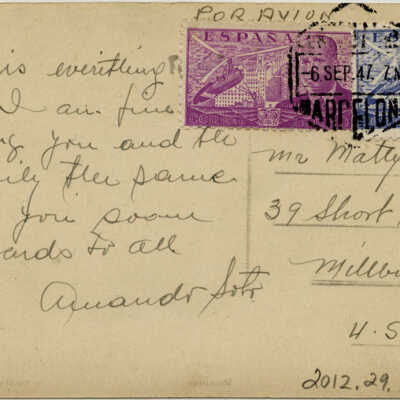 POR AVION
ESPAÑA
-6 SEP. 47. 7.M
BARCELON
is everthing
I am fine
you and the
ily the same
you soon
ards to all
Amando Soto
Mr Matty
39 Short
Millb
U.S
2012.29.